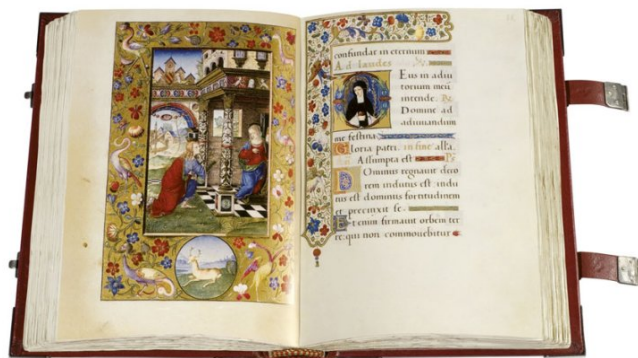 confundar in eternum
Ad laudes
Eus in adiu
torium meū
intende. Ps
Domine ad
adiuuandum
me festina
Gloria patri. in fine alla.
Assumpta est Ps
Ominus regnauit deco
rem indutus est indu
tus est dominus fortitudinem
et precinxit se.
Etenim firmauit orbem ter
re: qui non commouebitur